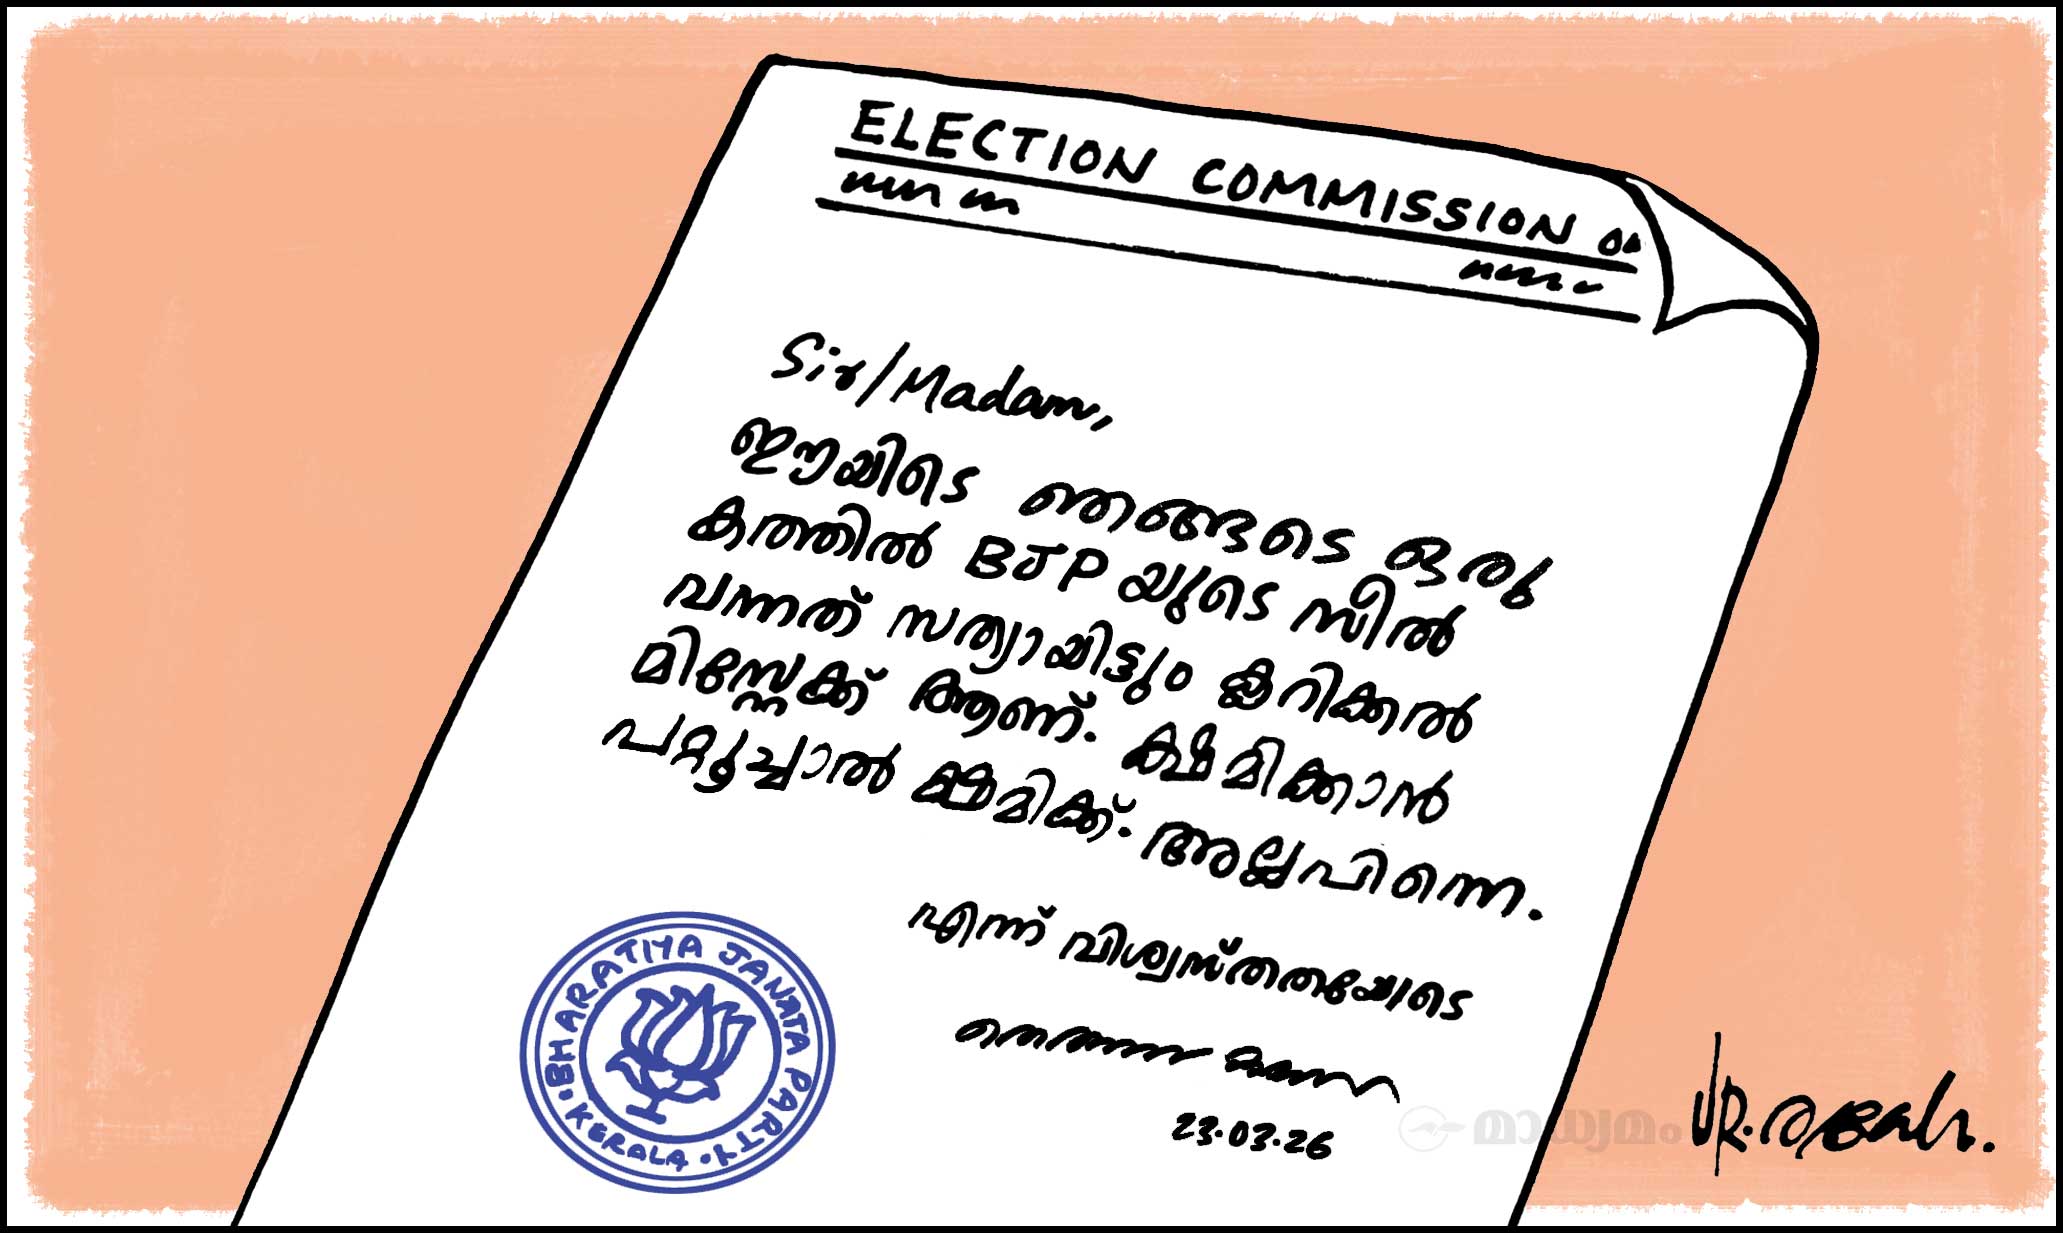 ELECTION COMMISSION
Sir/Madam,
ഈയിടെ ഞങ്ങടെ ഒരു
കത്തിൽ BJP യുടെ സീൽ
വന്നത് സത്യായിട്ടും ക്ലറിക്കൽ
മിസ്റ്റേക്ക് ആണ്. ക്ഷമിക്കാൻ
പറ്റൂച്ചാൽ ക്ഷമിക്ക്. അല്ലപിന്നെ.
എന്ന് വിശ്വസ്തതയോടെ
23.03.26
BHARATIYA JANATA PARTY
KERALA
മാധ്യമം